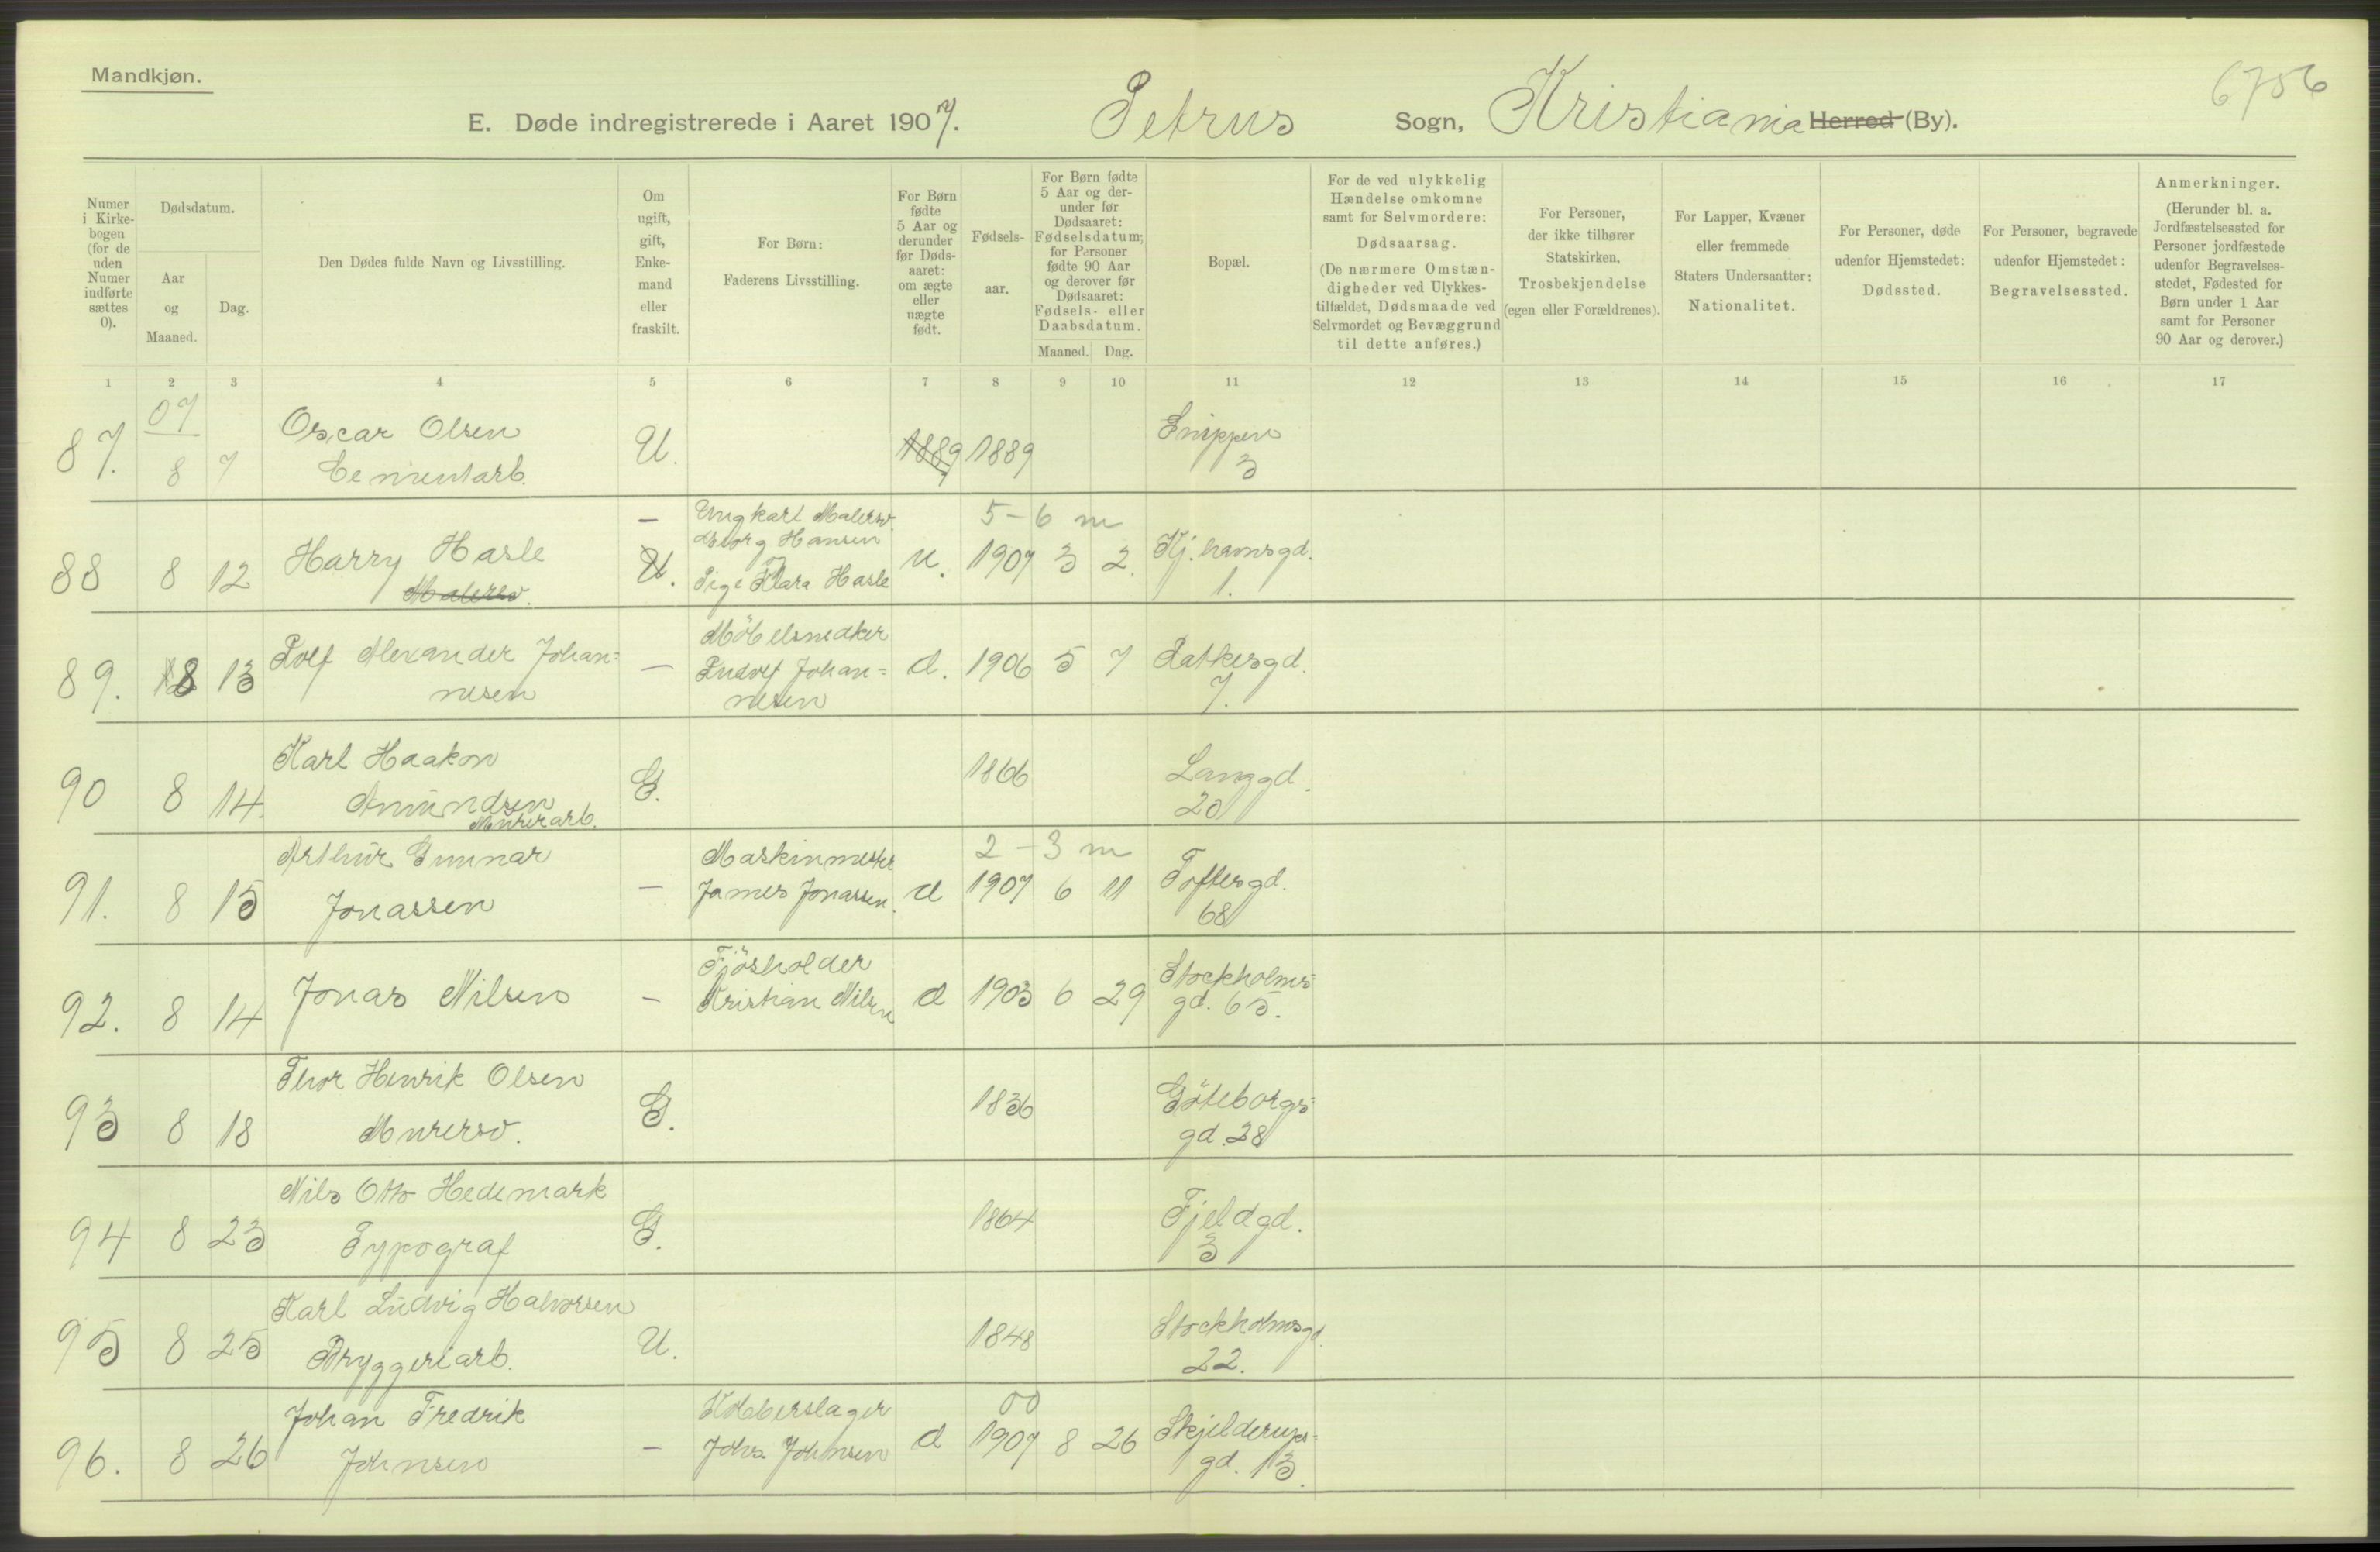 Mandkjøn.
6756
E. Døde indregistrerede i Aaret 1907. Petrus Sogn, Kristiania Herred (By).
Numer i Kirkebogen (for de uden Numer indførte sættes 0).
Dødsdatum.
Aar og Maaned.
Dag.
Den Dødes fulde Navn og Livsstilling.
Om ugift, gift, Enkemand eller fraskilt.
For Børn: Faderens Livsstilling.
For Børn fødte 5 Aar og derunder før Dødsaaret: om ægte eller uægte født.
Fødselsaar.
For Børn fødte 5 Aar og derunder før Dødsaaret: Fødselsdatum; for Personer fødte 90 Aar og derover før Dødsaaret: Fødsels- eller Daabsdatum.
Maaned. Dag.
Bopæl.
For de ved ulykkelig Hændelse omkomne samt for Selvmordere: Dødsaarsag. (De nærmere Omstændigheder ved Ulykkestilfældet, Dødsmaade ved Selvmordet og Bevæggrund til dette anføres.)
For Personer, der ikke tilhører Statskirken, Trosbekjendelse (egen eller Forældrenes).
For Lapper, Kvæner eller fremmede Staters Undersaatter: Nationalitet.
For Personer, døde udenfor Hjemstedet: Dødssted.
For Personer, begravede udenfor Hjemstedet: Begravelsessted.
Anmerkninger. (Herunder bl. a. Jordfæstelsessted for Personer jordfæstede udenfor Begravelsesstedet, Fødested for Børn under 1 Aar samt for Personer 90 Aar og derover.)
1 2 3 4 5 6 7 8 9 10 11 12 13 14 15 16 17
07
87. 8 7 Oscar Olsen U. 1889 1889 Snippen
Cementarb. 3
— Ungkarl Malersv. 5-6 m
88 8 12 Harry Hasle U. Georg Hansen u. 1907 3 2. Kj.havnsgd.
Malersv. Pige Klara Hasle 1.
Möbelsnedker
89. 8 13 Rolf Alexander Johan= — Rudolf Johan= d. 1906 5 7 Rathkesgd.
nesen nesen 7.
90 8 14. Karl Haakon G. 1866 Langgd.
Amundsen 20
Murerarb.
Arthur Gunnar Maskinmester 2-3 m
91. 8 15 Jonassen — James Jonassen. d 1907 6 11 Toftesgd.
68
Fjösholder
92. 8 14 Jonas Nilsen — Kristian Nilsen d 1903 6 29 Stockholms=
gd. 65.
93 8 18 Thor Henrik Olsen G. 1836 Göteborgs=
Murersv. gd. 28
94 8 23 Nils Otto Hedemark G. 1864 Fjeldgd.
Typograf 3
95 8 25 Karl Ludvig Halvorsen U. 1848 Stockholmsgd.
Bryggeriarb. 22.
Johan Fredrik Kobberslager 00
96. 8 26 Johnsen — Johs. Johnsen d 1907 8 26 Skjelderups=
gd. 13.